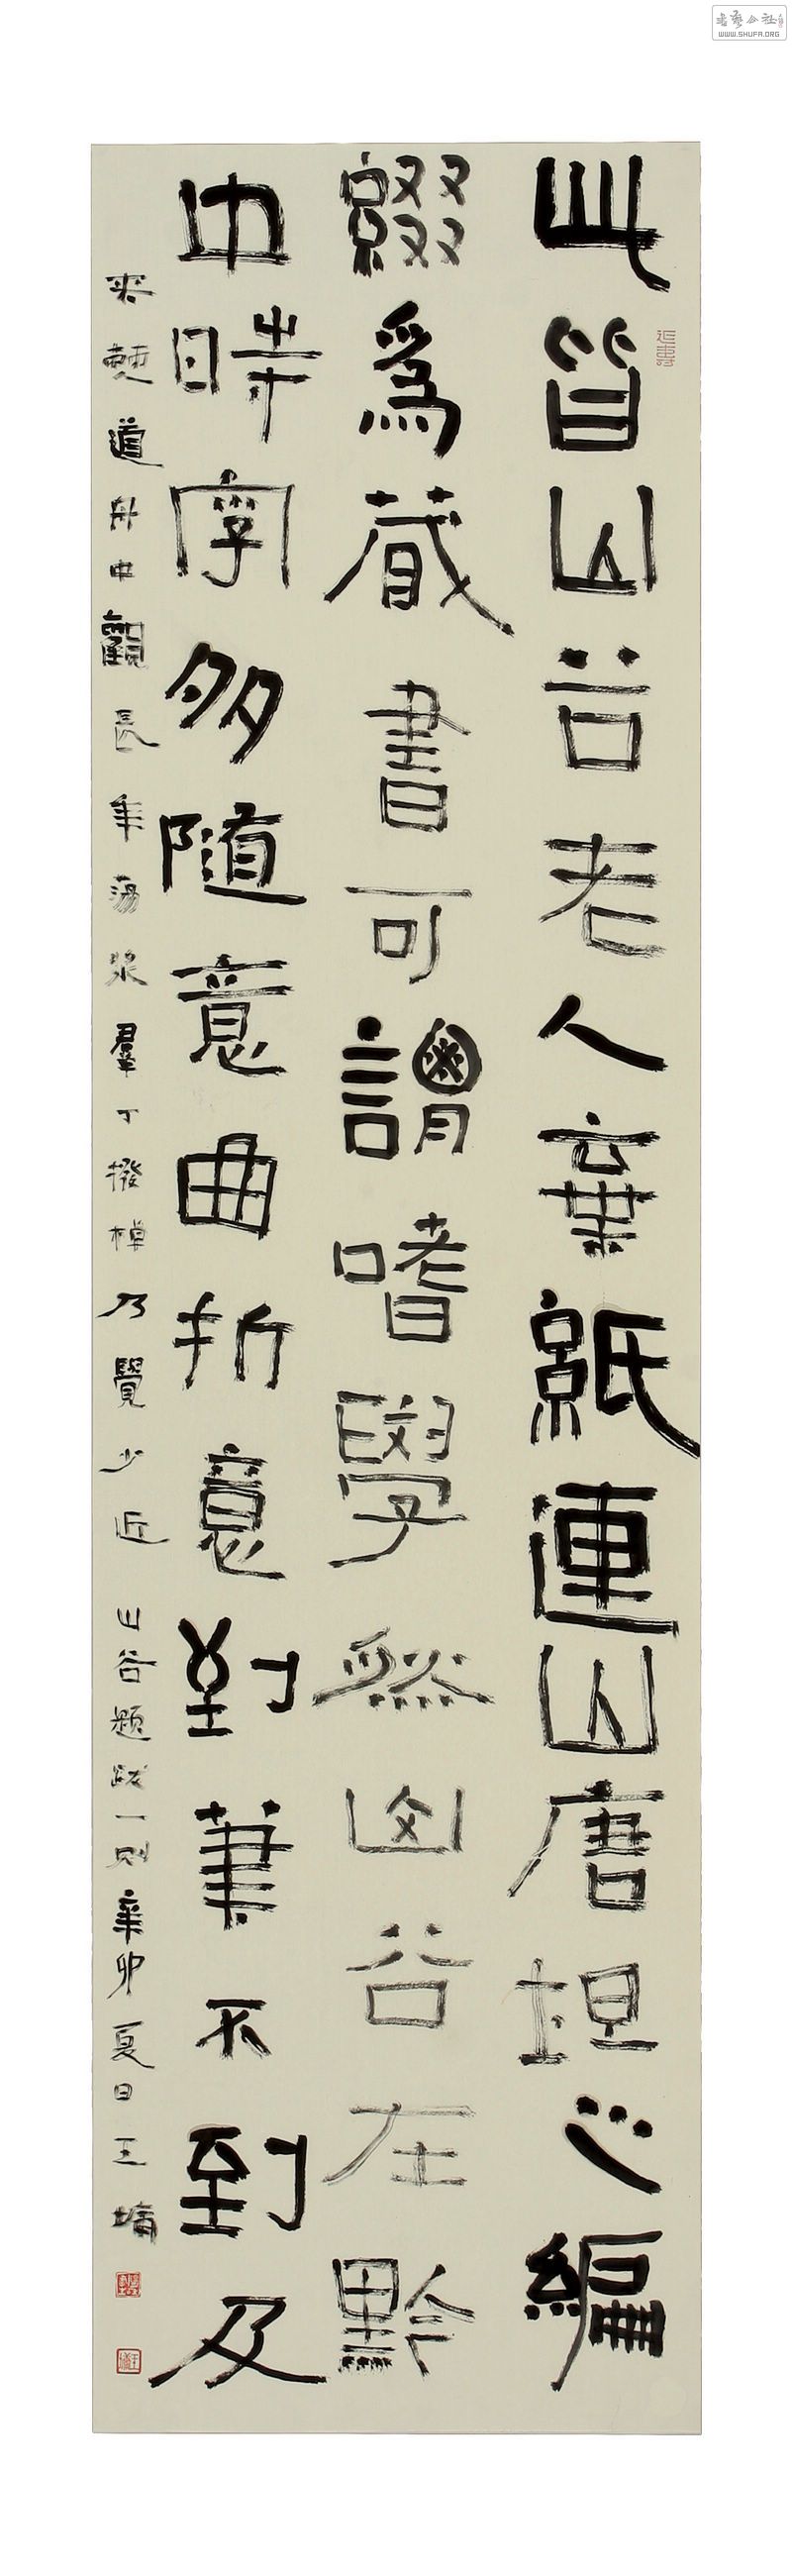 此皆山谷老人棄紙連山唐坦之編
綴為蔵書可謂嗜學然山谷在黔
中時字多隨意曲折意到筆不到及
來僰道舟中觀長年蕩槳群丁撥棹乃覺少近 山谷題跋一則辛卯夏日王墉
WWW.SHUFA.ORG